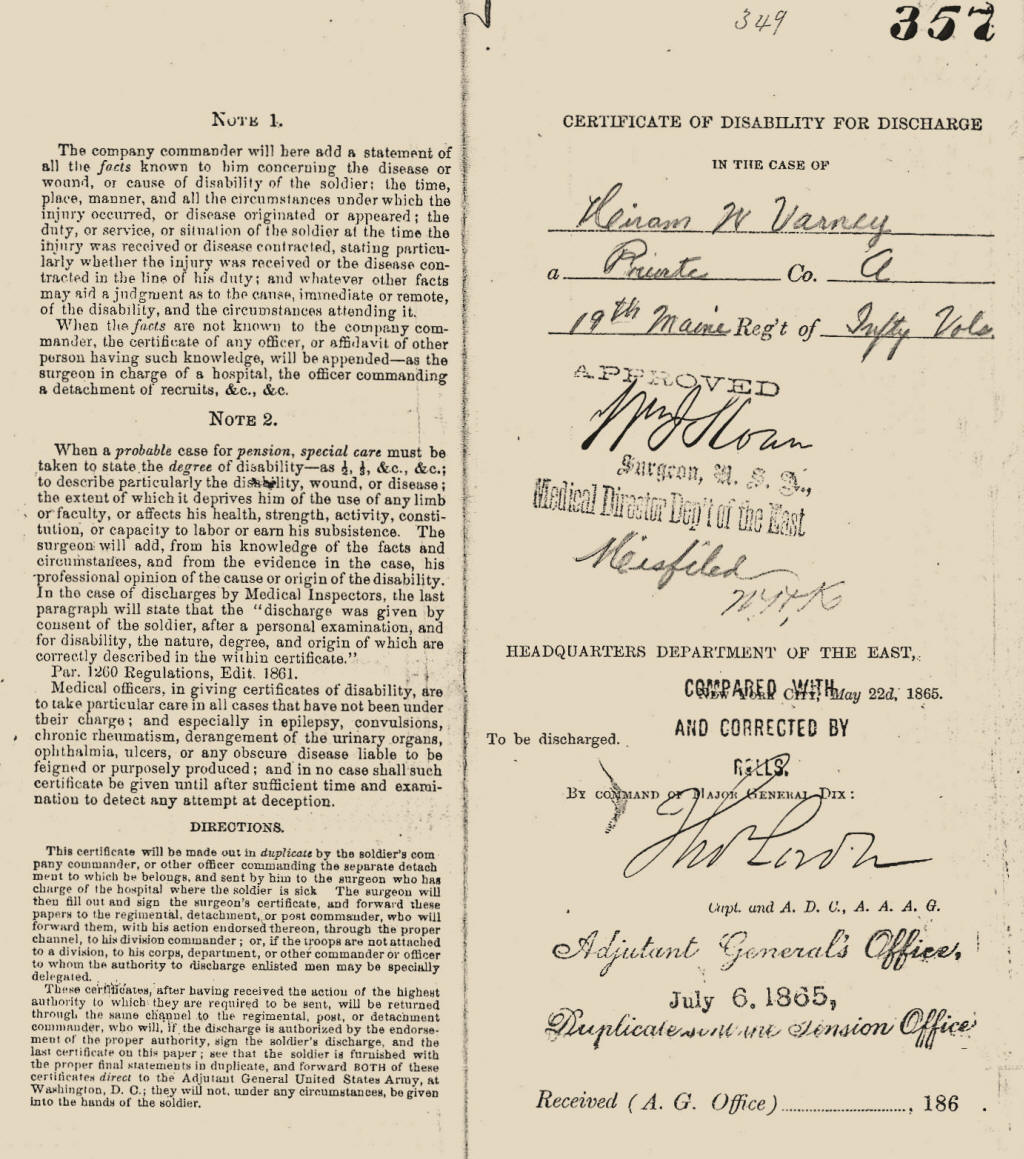 NOTE 1.
The company commander will here add a statement of
all the facts known to him concerning the disease or
wound, or cause of disability of the soldier; the time,
place, manner, and all the circumstances under which the
injury occurred, or disease originated or appeared; the
duty, or service, or situation of the soldier at the time the
injury was received or disease contracted, stating particu-
larly whether the injury was received or the disease con-
tracted in the line of his duty; and whatever other facts
may aid a judgment as to the cause, immediate or remote,
of the disability, and the circumstances attending it.
When the facts are not known to the company com-
mander, the certificate of any officer, or affidavit of other
person having such knowledge, will be appended—as the
surgeon in charge of a hospital, the officer commanding
a detachment of recruits, &c., &c.
NOTE 2.
When a probable case for pension, special care must be
taken to state the degree of disability—as ½, ⅓, &c., &c.;
to describe particularly the disability, wound, or disease;
the extent of which it deprives him of the use of any limb
or faculty, or affects his health, strength, activity, consti-
tution, or capacity to labor or earn his subsistence. The
surgeon will add, from his knowledge of the facts and
circumstances, and from the evidence in the case, his
professional opinion of the cause or origin of the disability.
In the case of discharges by Medical Inspectors, the last
paragraph will state that the "discharge was given by
consent of the soldier, after a personal examination, and
for disability, the nature, degree, and origin of which are
correctly described in the within certificate."
Par. 1260 Regulations, Edit. 1861.
Medical officers, in giving certificates of disability, are
to take particular care in all cases that have not been under
their charge; and especially in epilepsy, convulsions,
chronic rheumatism, derangement of the urinary organs,
ophthalmia, ulcers, or any obscure disease liable to be
feigned or purposely produced; and in no case shall such
certificate be given until after sufficient time and exami-
nation to detect any attempt at deception.
DIRECTIONS.
This certificate will be made out in duplicate by the soldier's com
pany commander, or other officer commanding the separate detach
ment to which he belongs, and sent by him to the surgeon who has
charge of the hospital where the soldier is sick The surgeon will
then fill out and sign the surgeon's certificate, and forward these
papers to the regimental, detachment, or post commander, who will
forward them, with his action endorsed thereon, through the proper
channel, to his division commander; or, if the troops are not attached
to a division, to his corps, department, or other commander or officer
to whom the authority to discharge enlisted men may be specially
delegated.
These certificates, after having received the action of the highest
authority to which they are required to be sent, will be returned
through the same channel to the regimental, post, or detachment
commander, who will, if the discharge is authorized by the endorse-
ment of the proper authority, sign the soldier's discharge, and the
last certificate on this paper; see that the soldier is furnished with
the proper final statements in duplicate, and forward BOTH of these
certificates direct to the Adjutant General United States Army, at
Washington, D. C.; they will not, under any circumstances, be given
into the hands of the soldier.
349
357
CERTIFICATE OF DISABILITY FOR DISCHARGE
IN THE CASE OF
Hiram W Varney
a Private Co. A
19th Maine Reg't of Infty Vols.
APPROVED
Wm J Sloan
Surgeon, U. S. A.,
Medical Director Dep't of the East
Misfiled
HEADQUARTERS DEPARTMENT OF THE EAST,
NEW YORK CITY, May 22d, 1865.
COMPARED WITH
AND CORRECTED BY
ROLLS.
To be discharged.
BY COMMAND OF MAJOR GENERAL DIX:
Capt. and A. D. C., A. A. A. G.
Adjutant General's Office,
July 6. 1865,
Duplicate sent the Pension Office
Received (A. G. Office)..............................., 186 .